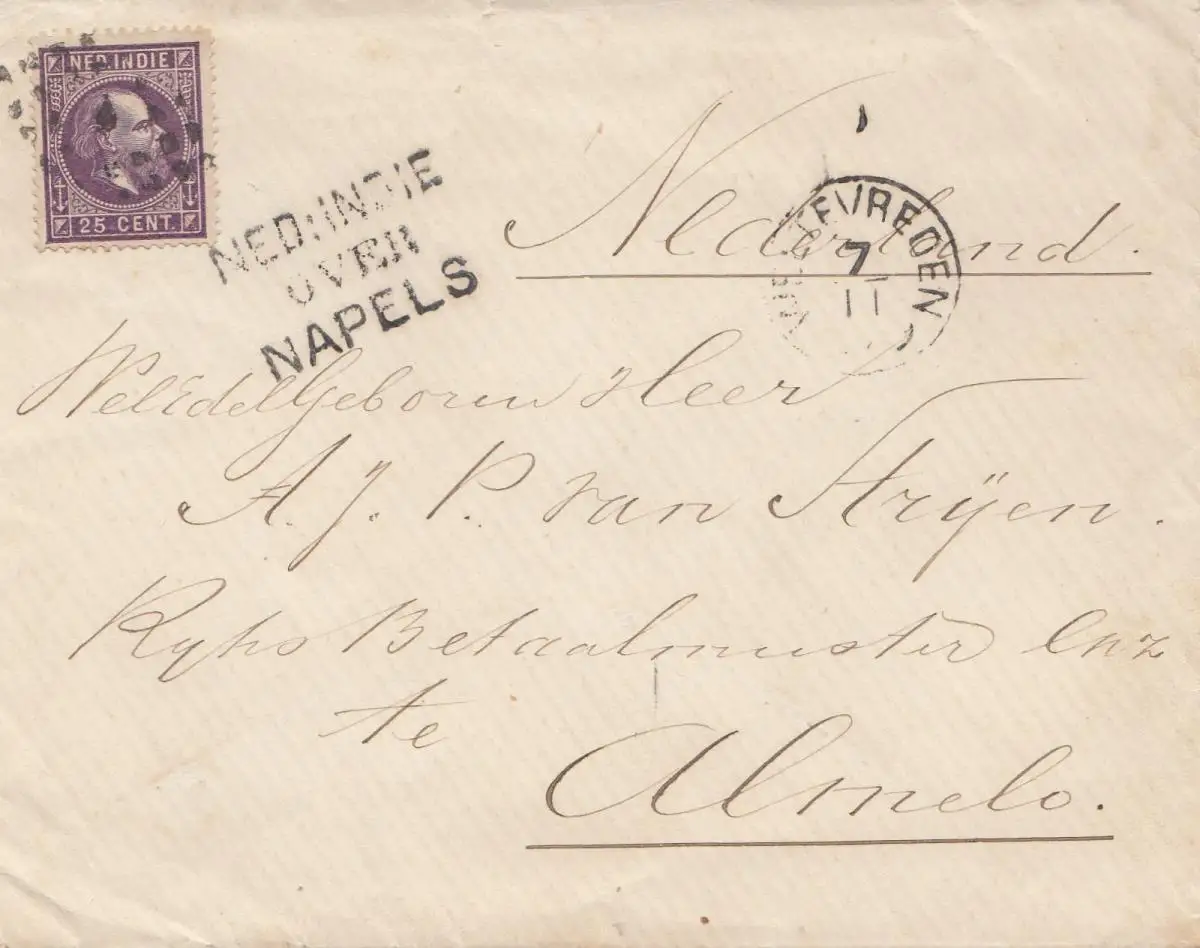 NED. INDIE
25 CENT.
NED: INDIE
OVER
NAPELS
Nederland.
WELTEVREDEN
7
11
WelEdelGeboren Heer
A. J. P. van Strÿen.
Ryks Betaalmeester enz
te
Almelo.